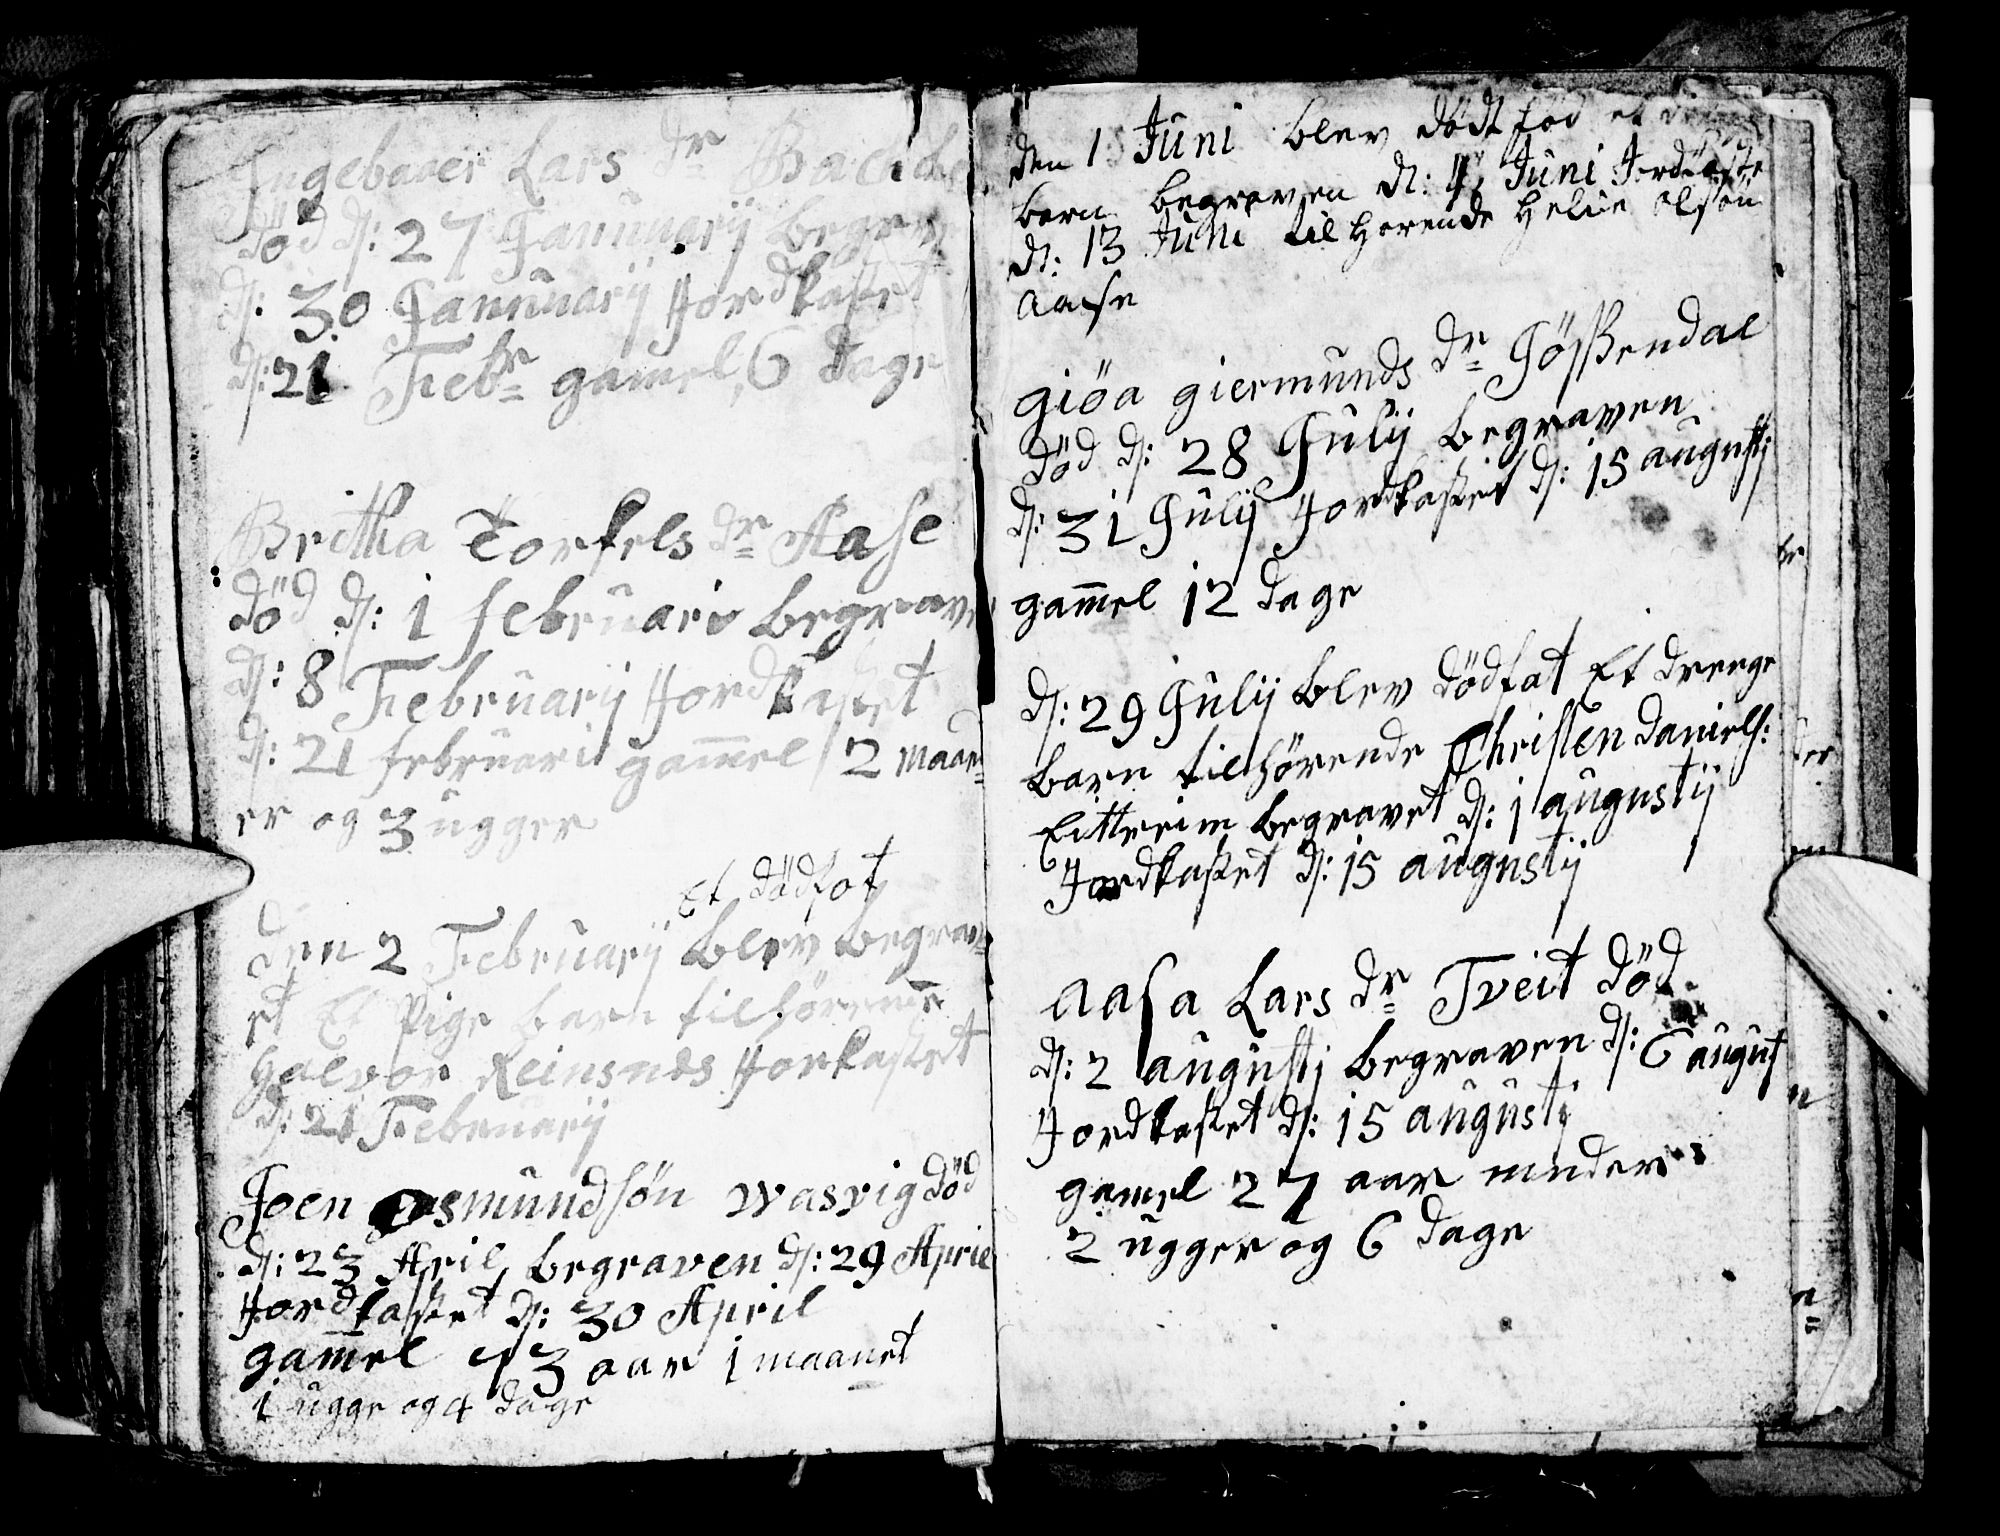 Ingebaaer Lars dr Bache
død d: 27 Januuarij begrav
d: 30 Januuarij Jordkastet
d: 21 Febr gamel 6 dage
Britha Torkels dr Aase
død d: 1 februari begrave
d: 8 Februarij Jordkastet
d: 21 februari gam̄el 2 maan
er og 3 ugger
Et dödfot
den 2 Februarij blev begrav
et Et Pige barn tilhörende
Halvor Reinsnes Jorkastet
d: 21 Februarij
Joen Osmundsøn Wasvig död
d: 23 April begraven d: 29 April
Jordkastet d: 30 April
gam̄el 3 aar 1 maanet
1 ugge og 4 dage
den 1 Juni blev dödt föd et
barn begraven d: 4 Juni Jordkaste
d: 13 Juni til Horende Helie olsön
aase
giöa giermunds dr Jösßendal
död d: 28 Julij begraven
d: 31 Julij Jordkastet d: 15 augustj
gam̄el 12 dage
d: 29 Julij blev dödfat Et drenge
barn tilhörende Christen Daniels:
Eittreim begravet d: 1 augustij
Jordkastet d: 15 augustij
aasa Lars dr Tveit död
d: 2 augustj begraven d: 6 august
Jordkastet d: 15 augustj
gamel 27 aar minder
2 ugger og 6 dage